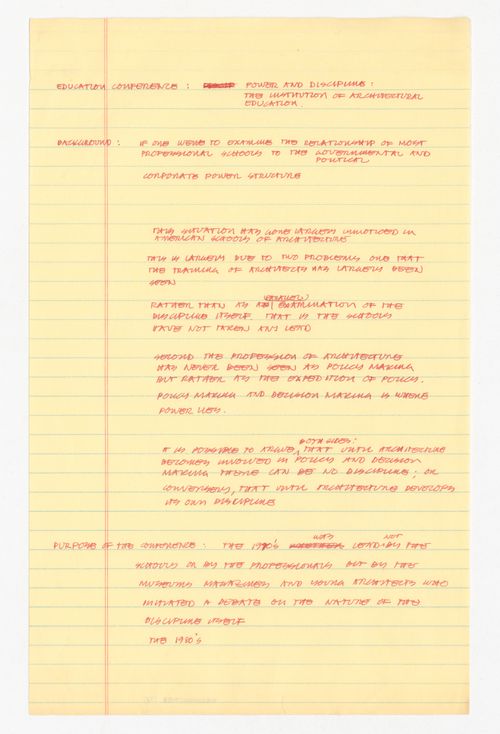 EDUCATION CONFERENCE : POWER AND DISCIPLINE :
THE INSTITUTION OF ARCHITECTURAL
EDUCATION.
BACKGROUND : IF ONE WERE TO EXAMINE THE RELATIONSHIP OF MOST
PROFESSIONAL SCHOOLS TO THE GOVERNMENTAL AND
POLITICAL
CORPORATE POWER STRUCTURE
THIS SITUATION HAS GONE LARGELY UNNOTICED IN
AMERICAN SCHOOLS OF ARCHITECTURE
THIS IS LARGELY DUE TO TWO PROBLEMS ONE THAT
THE TRAINING OF ARCHITECTS HAS LARGELY BEEN
SEEN
(PARALLEL)
RATHER THAN AS AN EXAMINATION OF THE
DISCIPLINE ITSELF. THAT IS THE SCHOOLS
HAVE NOT TAKEN ANY LEAD
SECOND THE PROFESSION OF ARCHITECTURE
HAS NEVER BEEN SEEN AS POLICY MAKING
BUT RATHER AS THE EXPEDITION OF POLICY.
POLICY MAKING AND DECISION MAKING IS WHERE
POWER LIES.
BOTH SIDES:
IT IS POSSIBLE TO ARGUE, THAT UNTIL ARCHITECTURE
BECOMES INVOLVED IN POLICY AND DECISION
MAKING THERE CAN BE NO DISCIPLINE; OR
CONVERSELY, THAT UNTIL ARCHITECTURE DEVELOPS
ITS OWN DISCIPLINE
WAS NOT
PURPOSE OF THE CONFERENCE : THE 1970'S LEAD BY THE
SCHOOLS OR BY THE PROFESSIONALS BUT BY THE
MUSEUMS MAGAZINES AND YOUNG ARCHITECTS WHO
INITIATED A DEBATE ON THE NATURE OF THE
DISCIPLINE ITSELF
THE 1980'S